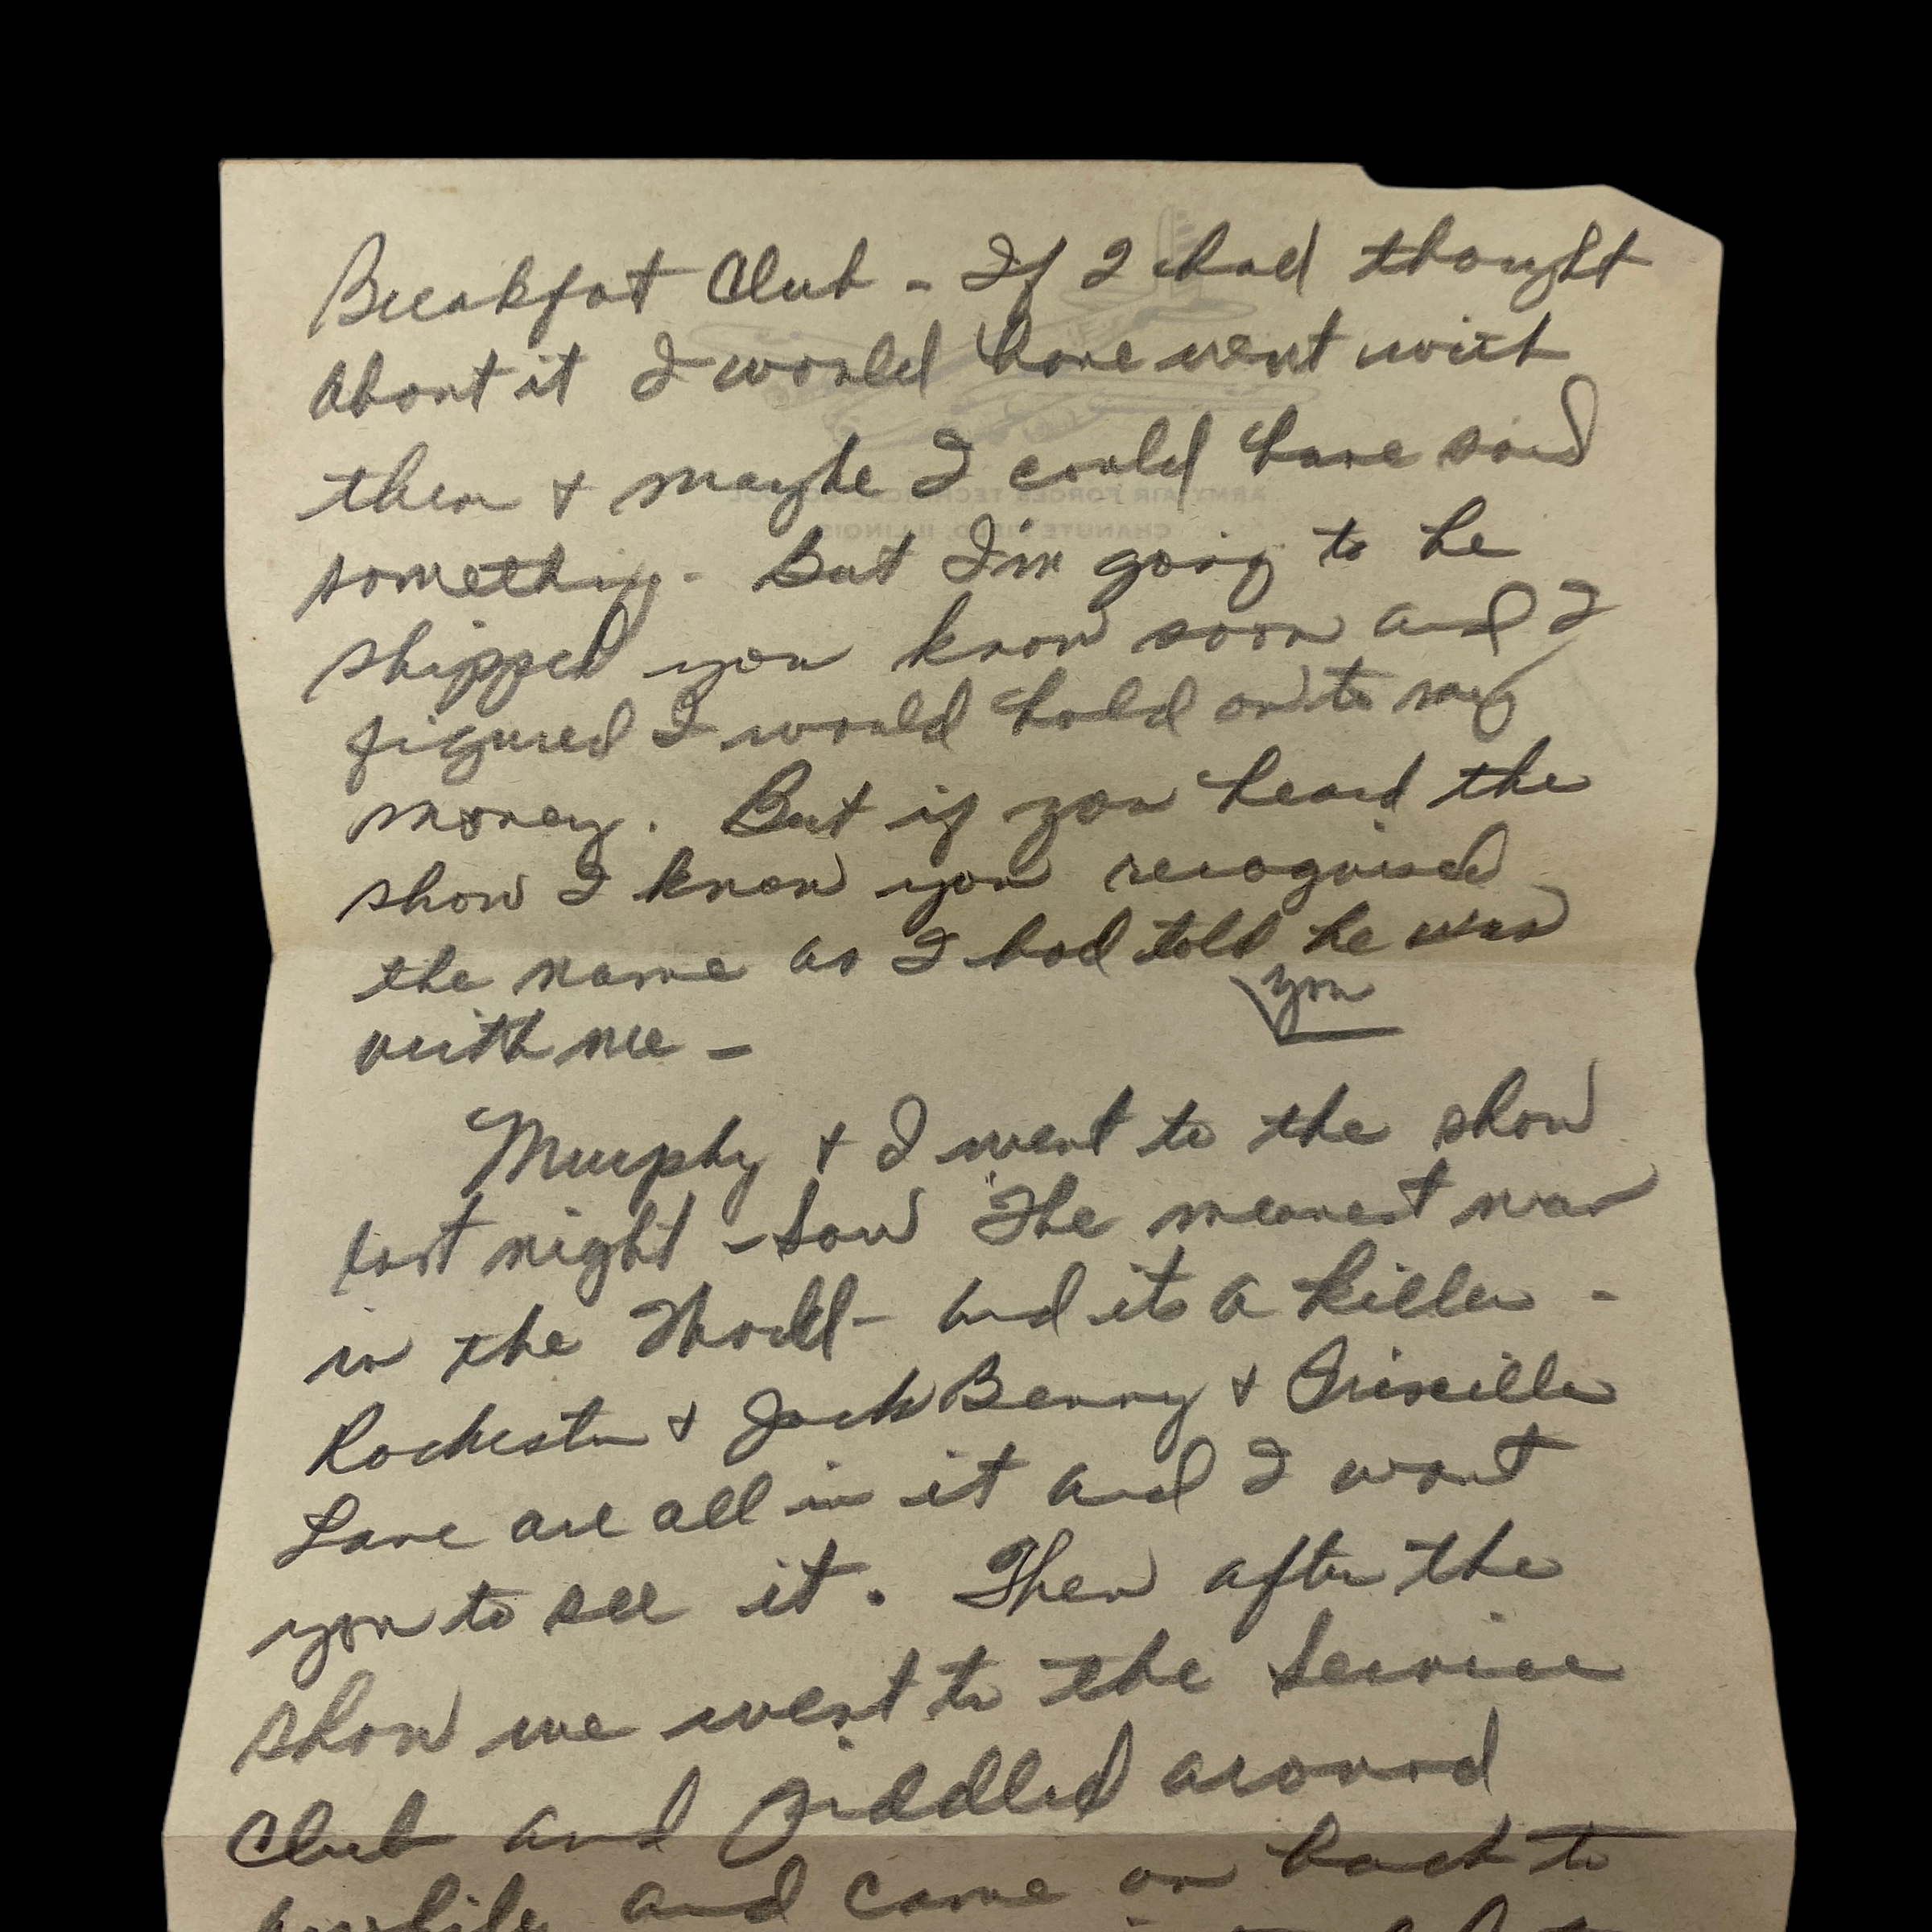 Breakfat Club - If I had thought
about it I would have went with
them & maybe I could have said
something. But I'm going to be
shipped you know soon and I
figured I would hold on to my
money. But if you heard the
show I know you recognised
the name as I had told you he was
with me -
Murphy & I went to the show
last night - Saw "The meanest man
in the World - and its a killer -
Rochester & Jack Benny & Priscilla
Lane are all in it and I want
you to see it. Then after the
show we went to the Service
Club and piddled around
awhile and came on back to
ARMY AIR FORCES TECHNICAL SCHOOL
CHANUTE FIELD, ILLINOIS